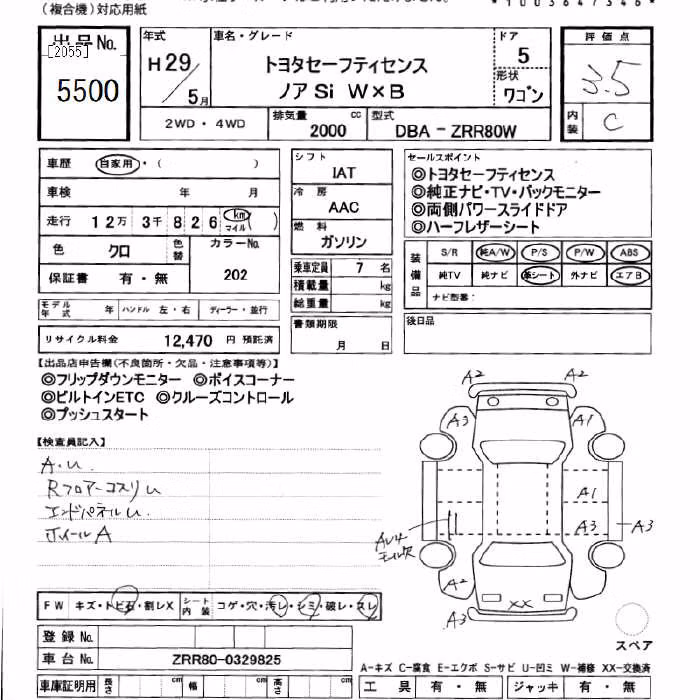 (複合機)対応用紙
*1003647346*
出品No. [2055] 5500
年式 H29/5月
車名・グレード トヨタセーフティセンス
ノアSi W×B
ドア 5
形状 ワゴン
評価点 3.5
内装 C
2WD・4WD
排気量 2000 cc
型式 DBA-ZRR80W
車歴 自家用・( )
車検 年 月
走行 12万 3千 8 2 6 km マイル ( )
色 クロ 色替 カラーNo. 202
保証書 有・無
モデル年式 年 ハンドル 左・右 ディーラー・並行
リサイクル料金 12,470 円 預託済
シフト IAT
冷房 AAC
燃料 ガソリン
乗車定員 7 名
積載量 kg
総重量 kg
書類期限 月 日
セールスポイント
◎トヨタセーフティセンス
◎純正ナビ・TV・バックモニター
◎両側パワースライドドア
◎ハーフレザーシート
装備品 S/R 純A/W P/S P/W ABS
純TV 純ナビ 革シート 外ナビ エアB
ナビ型番:
後日品
【出品店申告欄(不良箇所・欠品・注意事項等)】
◎フリップダウンモニター ◎ボイスコーナー
◎ビルトインETC ◎クルーズコントロール
◎プッシュスタート
【検査員記入】
A.U
RフロアーコスリU
エンドパネルU
ホイールA
A2 A2
A3 A3
A1
A3 A3
A2
XX
A3
スペア
FW キズ・トビ石・割レX シート内装 コゲ・穴・汚レ・シミ・破レ・スレ
登録No.
車台No. ZRR80-0329825
A-キズ C-腐食 E-エクボ S-サビ U-凹ミ W-補修 XX-交換済
車庫証明用 長さ cm 幅 cm 高さ cm
工具 有・無 ジャッキ 有・無